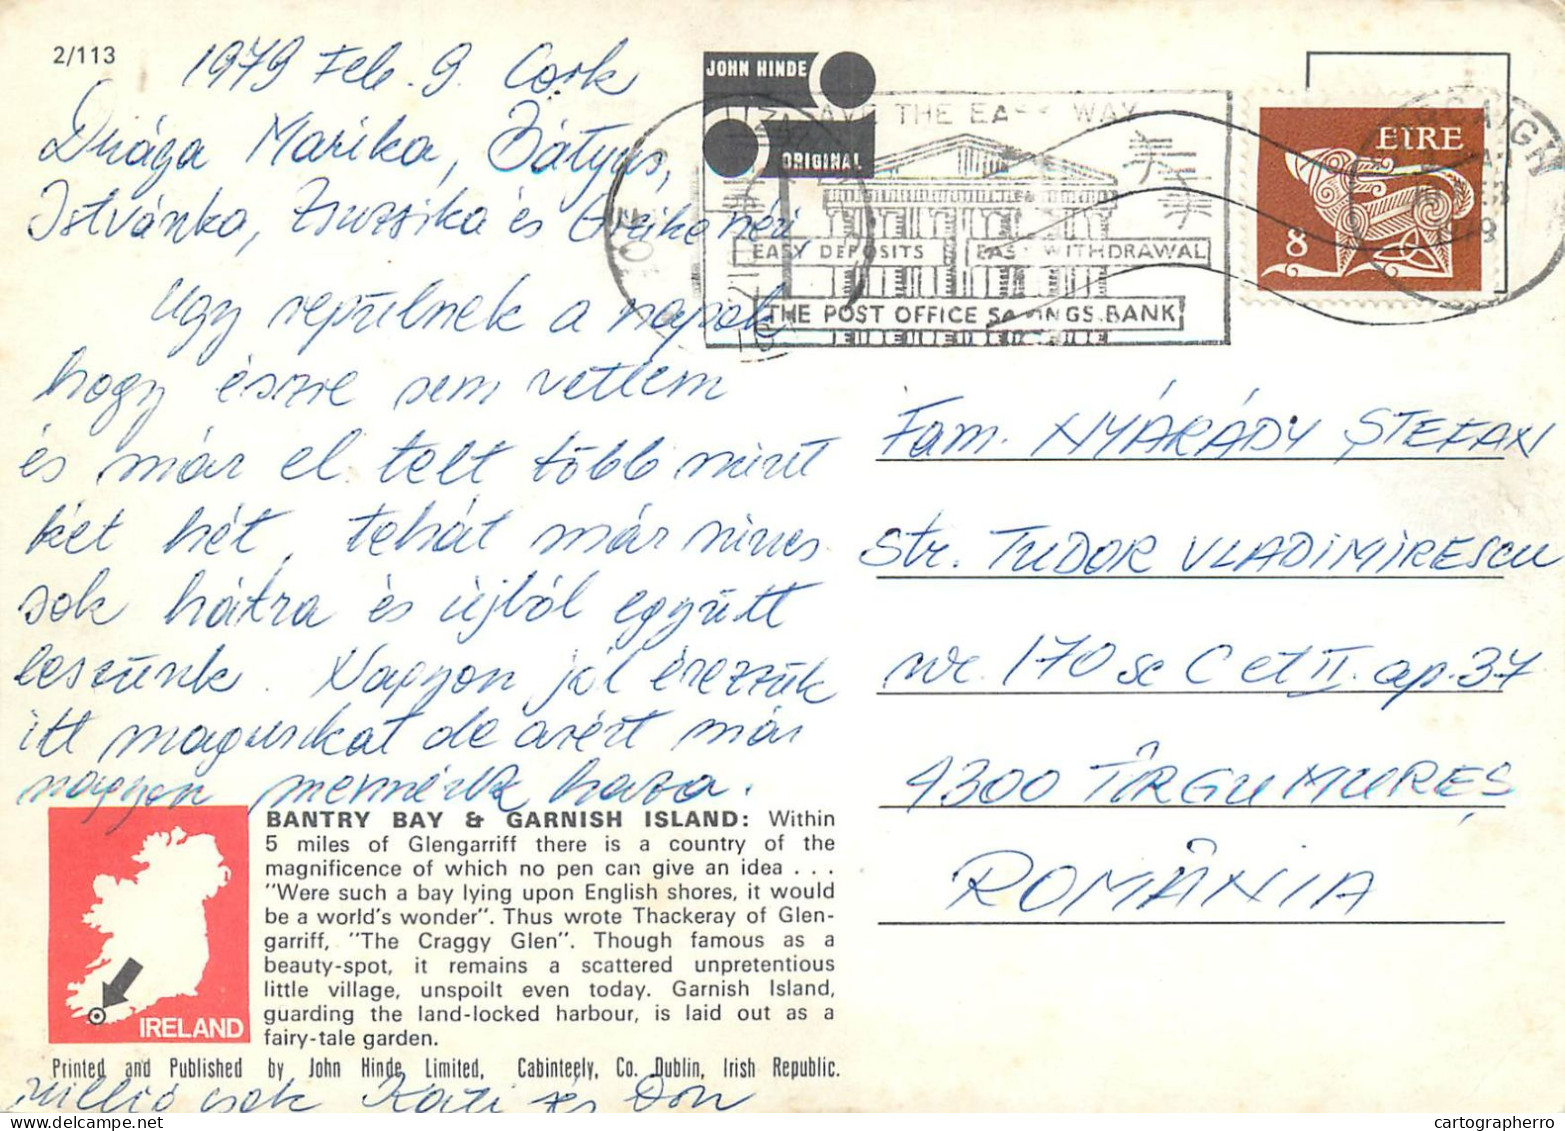 2/113
1979 Feb. 9. Cork
Drága Marika, Bátyus,
Istvánka, Zsuzsika és
Úgy repülnek a napok
hogy észre sem vettem
és már el telt több mint
két hét, tehát már nincs
sok hátra és újból együtt
leszünk. Nagyon jól érezzük
itt magunkat de azért már
nagyon mennénk haza.
JOHN HINDE
ORIGINAL
THE EASY WAY
EASY DEPOSITS
EASY WITHDRAWAL
THE POST OFFICE SAVINGS BANK
EIRE
8
Fam. NYÁRÁDY ȘTEFAN
Str. TUDOR VLADIMIRESCU
nr. 170 sc C et II. ap. 37
4300 TÎRGU MUREȘ
ROMÂNIA
IRELAND
BANTRY BAY & GARNISH ISLAND: Within
5 miles of Glengarriff there is a country of the
magnificence of which no pen can give an idea . . .
"Were such a bay lying upon English shores, it would
be a world's wonder". Thus wrote Thackeray of Glen-
garriff, "The Craggy Glen". Though famous as a
beauty-spot, it remains a scattered unpretentious
little village, unspoilt even today. Garnish Island,
guarding the land-locked harbour, is laid out as a
fairy-tale garden.
Printed and Published by John Hinde Limited, Cabinteely, Co. Dublin, Irish Republic.
millió csók Kati és Don
cartographerro